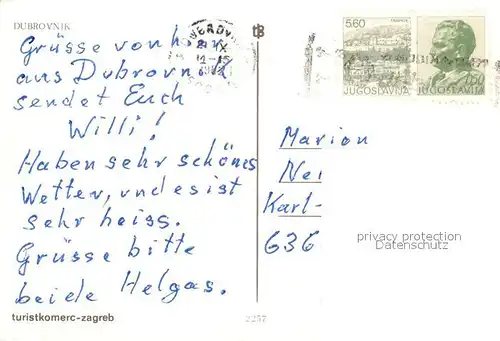 DUBROVNIK
Grüsse von hier
aus Dubrovnik
sendet Euch
Willi!
Haben sehr schönes
Wetter, und es ist
sehr heiss.
Grüsse bitte
beide Helgas.
turistkomerc-zagreb
5.60
JUGOSLAVIJA
0.50
JUGOSLAVIJA
Marion
Nei
Karl-
636
privacy protection
Datenschutz
2257